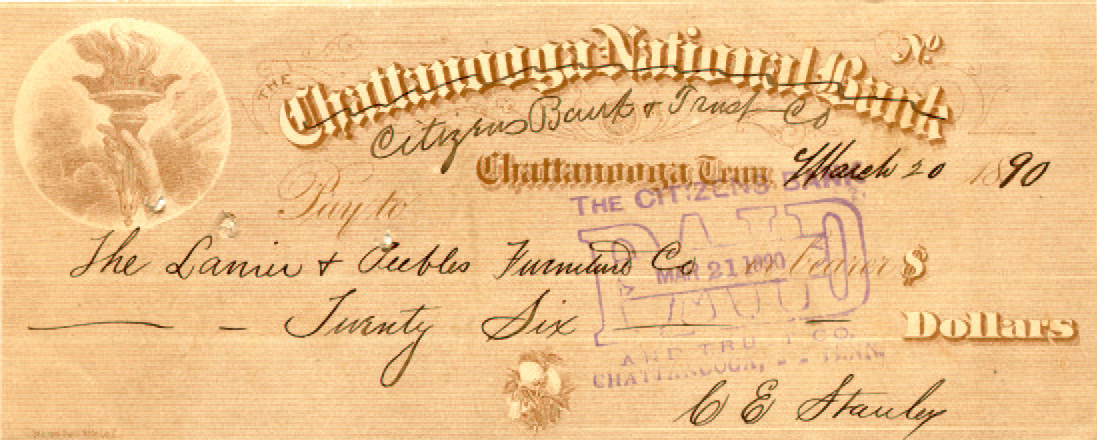 THE Chattanooga National Bank No
Citizens Bank & Trust Co
Chattanooga, Tenn. March 20 1890
THE CITIZENS BANK
Pay to
PAID
The Lanier & Peebles Furniture Co or Bearer $
MAR 21 1890
Twenty Six Dollars
AND TRUST CO.
CHATTANOOGA, - - TENN.
C E Stanley